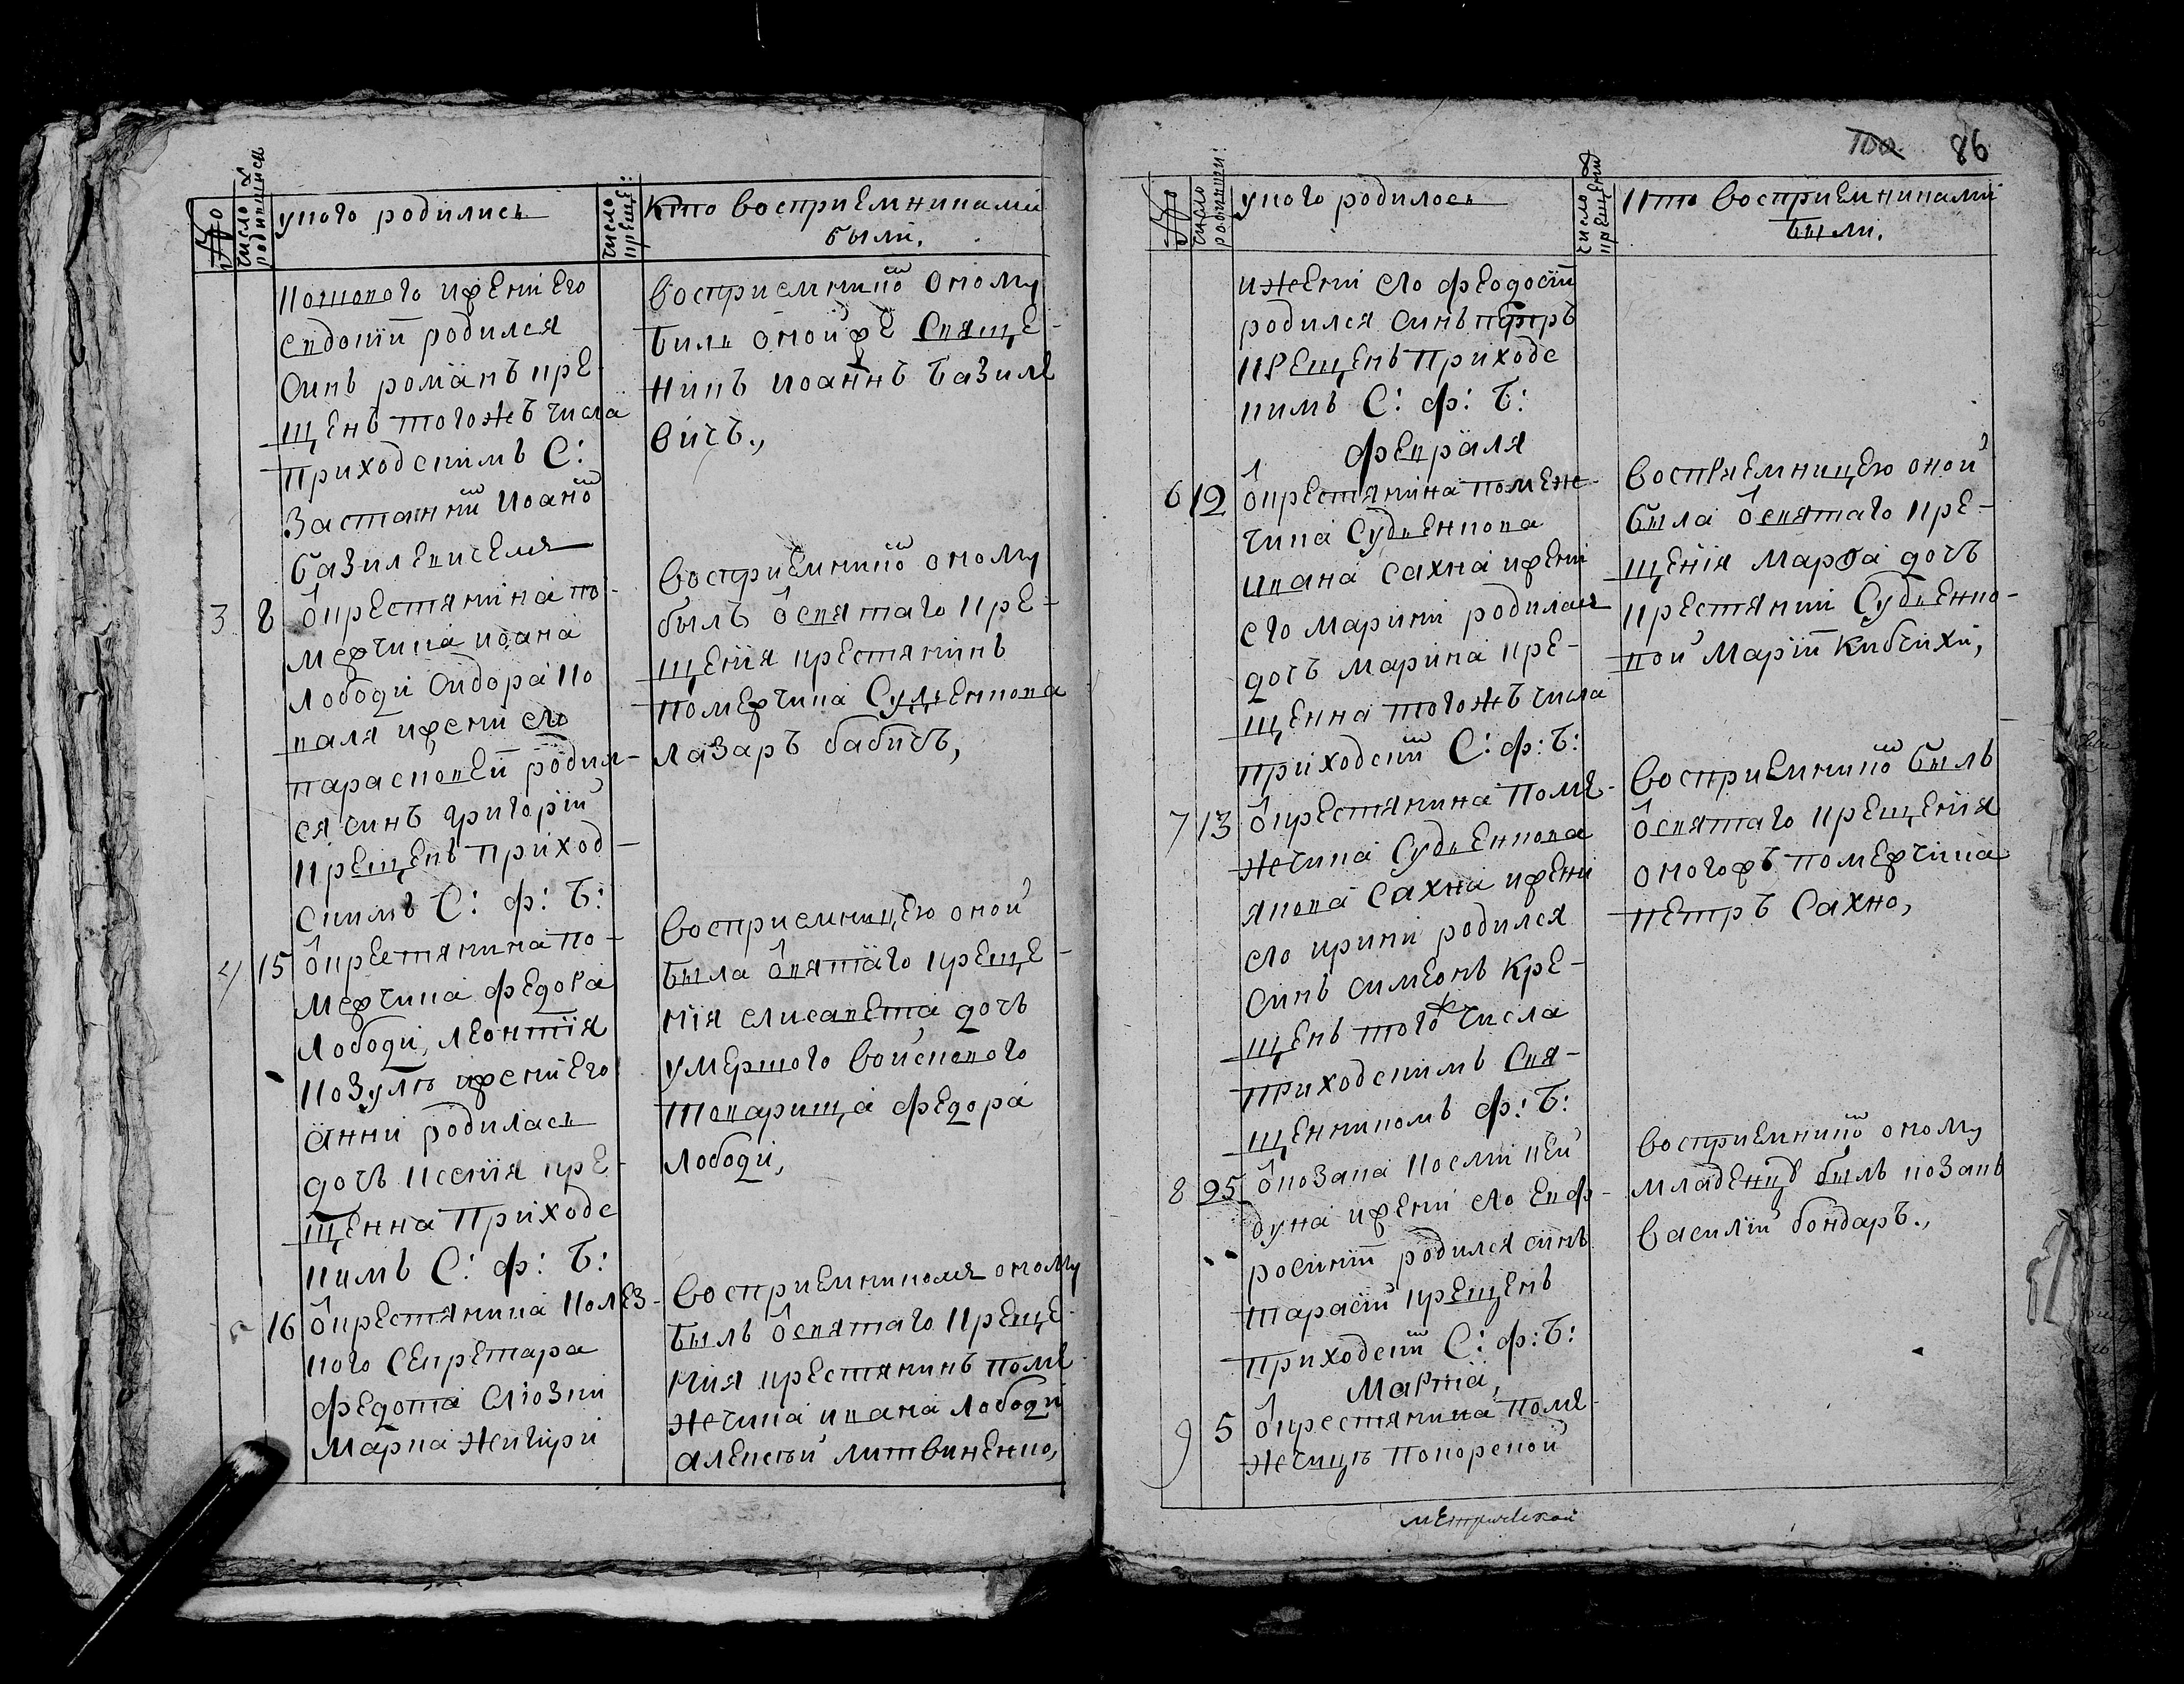 №
число родившися
у кого родились
число креще:
Кто восприемниками были.
Кошового ижени Его
Евдокіи родился
синь романъ кре-
щенъ тогожъ числа
приходскимъ С:
Іоаном
Базилевичемъ
восприемником оному
билъ онойже Свяще-
никъ Иоаннъ Базиле
вичъ.,
3 8 Укрестянина по-
мещика иоана
Лободи Сидора Ко
валя ижени его
парасковеи родил-
ся синъ григорій
крещенъ приход-
скимъ С: ф: Б:
восприемником оному
былъ освятаго кре-
щенія крестянинъ
помещика Судиенкова
лазаръ бабичъ,
4 15 Укрестянина по-
мещика федора
Лободи, леонтія
Козули ижени Его
анни родилась
дочь ксенія кре-
щенна Приходс
кимъ С: ф: Б:
восприемницею оной
была освятаго креще-
нія елисавета дочь
умершого войскового
товарища федора
лободи,
5 16 Укрестянина Колез-
кого Секретара
федота Слюзки
Марка жигири
восприемникомъ оному
былъ освятаго Креще-
нія крестянинъ поме
жчика ивана лободи
алексѣй литвиненко,
100 86
№
число родивши:
у кого родилось
число крещения
Кто восприемниками
были.
ижени его феодосіи
родился синъ петръ
крещенъ приходс
кимъ С: ф: Б:
февраля
6 12 Укрестянина помеж-
чика Судиенкова
ивана сахна ижени
его марини родилась
дочь марина кре-
щенна тогожъ числа
приходским С: ф: Б:
восприемницею оной
была освятаго кре-
щенія Марѳа дочъ
крестянки Судиенко-
вой Маріи Кибчихи,
7 13 Укрестянина поме-
жчика Судиенкова
якова Сахна ижени
его ирини родился
синь симеонь Кре-
щенъ тогож числа
приходскимъ Свя-
щенникомъ ф: Б:
восприемником былъ
освятаго крещенія
оногожъ помещика
петръ Сахно,
8 25 Укозака Косми ней
дуна ижени его Евф-
росиніи родился синъ
тарасій крещенъ
приходским С: ф: Б:
восприемником оному
младенцу былъ козакъ
василій бондаръ.,
Марта,
9 5 Укрестянина поме-
жчицы покорской
метрической